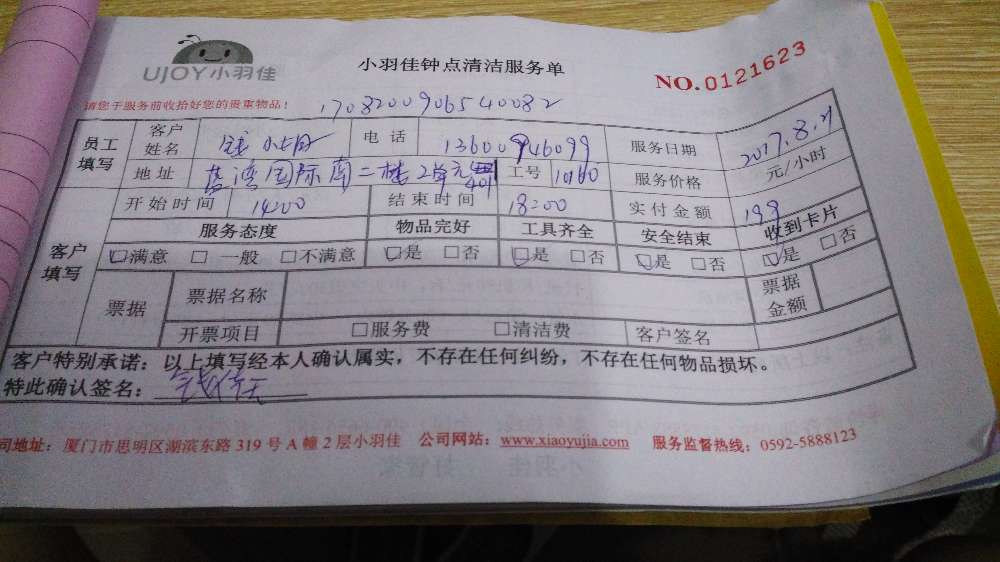 UJOY小羽佳
小羽佳钟点清洁服务单
NO.0121623
请您于服务前收拾好您的贵重物品！
1708200906540082
员工填写 客户姓名 钱 电话 13600946099 服务日期 2017.8.21
地址 蓝湾国际 二楼2单元 401 工号 10160 服务价格 元/小时
开始时间 14:00 结束时间 18:00 实付金额 199
客户填写 服务态度 物品完好 工具齐全 安全结束 收到卡片
☑满意 □一般 □不满意 ☑是 □否 ☑是 □否 ☑是 □否 ☑是 □否
票据 票据名称 票据金额
开票项目 □服务费 □清洁费 客户签名
客户特别承诺：以上填写经本人确认属实，不存在任何纠纷，不存在任何物品损坏。
特此确认签名：钱
司地址：厦门市思明区湖滨东路319号A幢2层小羽佳 公司网站：www.xiaoyujia.com 服务监督热线：0592-5888123